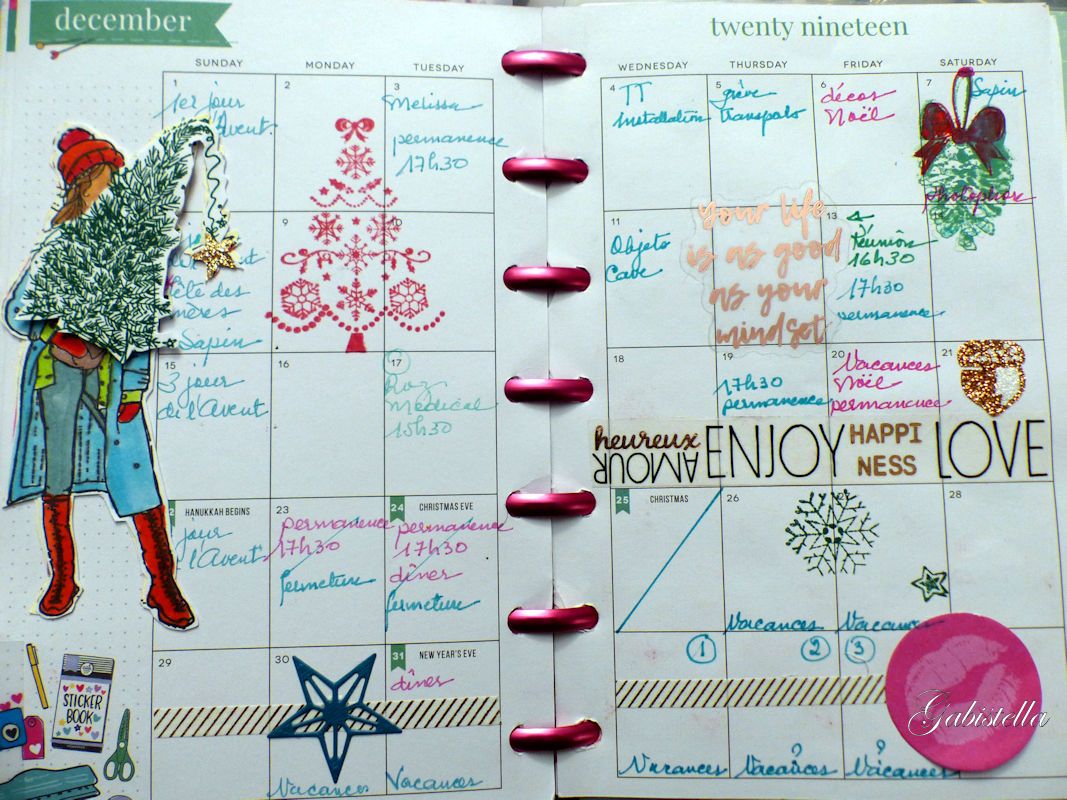 december
twenty nineteen
SUNDAY MONDAY TUESDAY
WEDNESDAY THURSDAY FRIDAY SATURDAY
1
1er jour
d'Avent
2
3
Melissa
permanence
17h30
4
TT
Installation
5
grève
transports
6
décos
Noël
7
Sapin
fête des
mères
Sapin
9
10
11
Objets
Cave
your life
is as good
as your
mindset
13
Réunion
16h30
17h30
permanence
15
3 jour
de l'Avent
16
17
Médical
15h30
18
19
17h30
permanence
20
Vacances
Noël
permanence
21
heureux
AMOUR
ENJOY
HAPPI
NESS
LOVE
HANUKKAH BEGINS
jour
l'Avent
23
permanence
17h30
fermeture
24 CHRISTMAS EVE
permanence
17h30
dîner
fermeture
25 CHRISTMAS
26
Vacances
27
Vacances
28
29
30
Vacances
31 NEW YEAR'S EVE
dîner
Vacances
1
Vacances
2
?
Vacances
3
?
Vacances
STICKER
BOOK
Gabistella